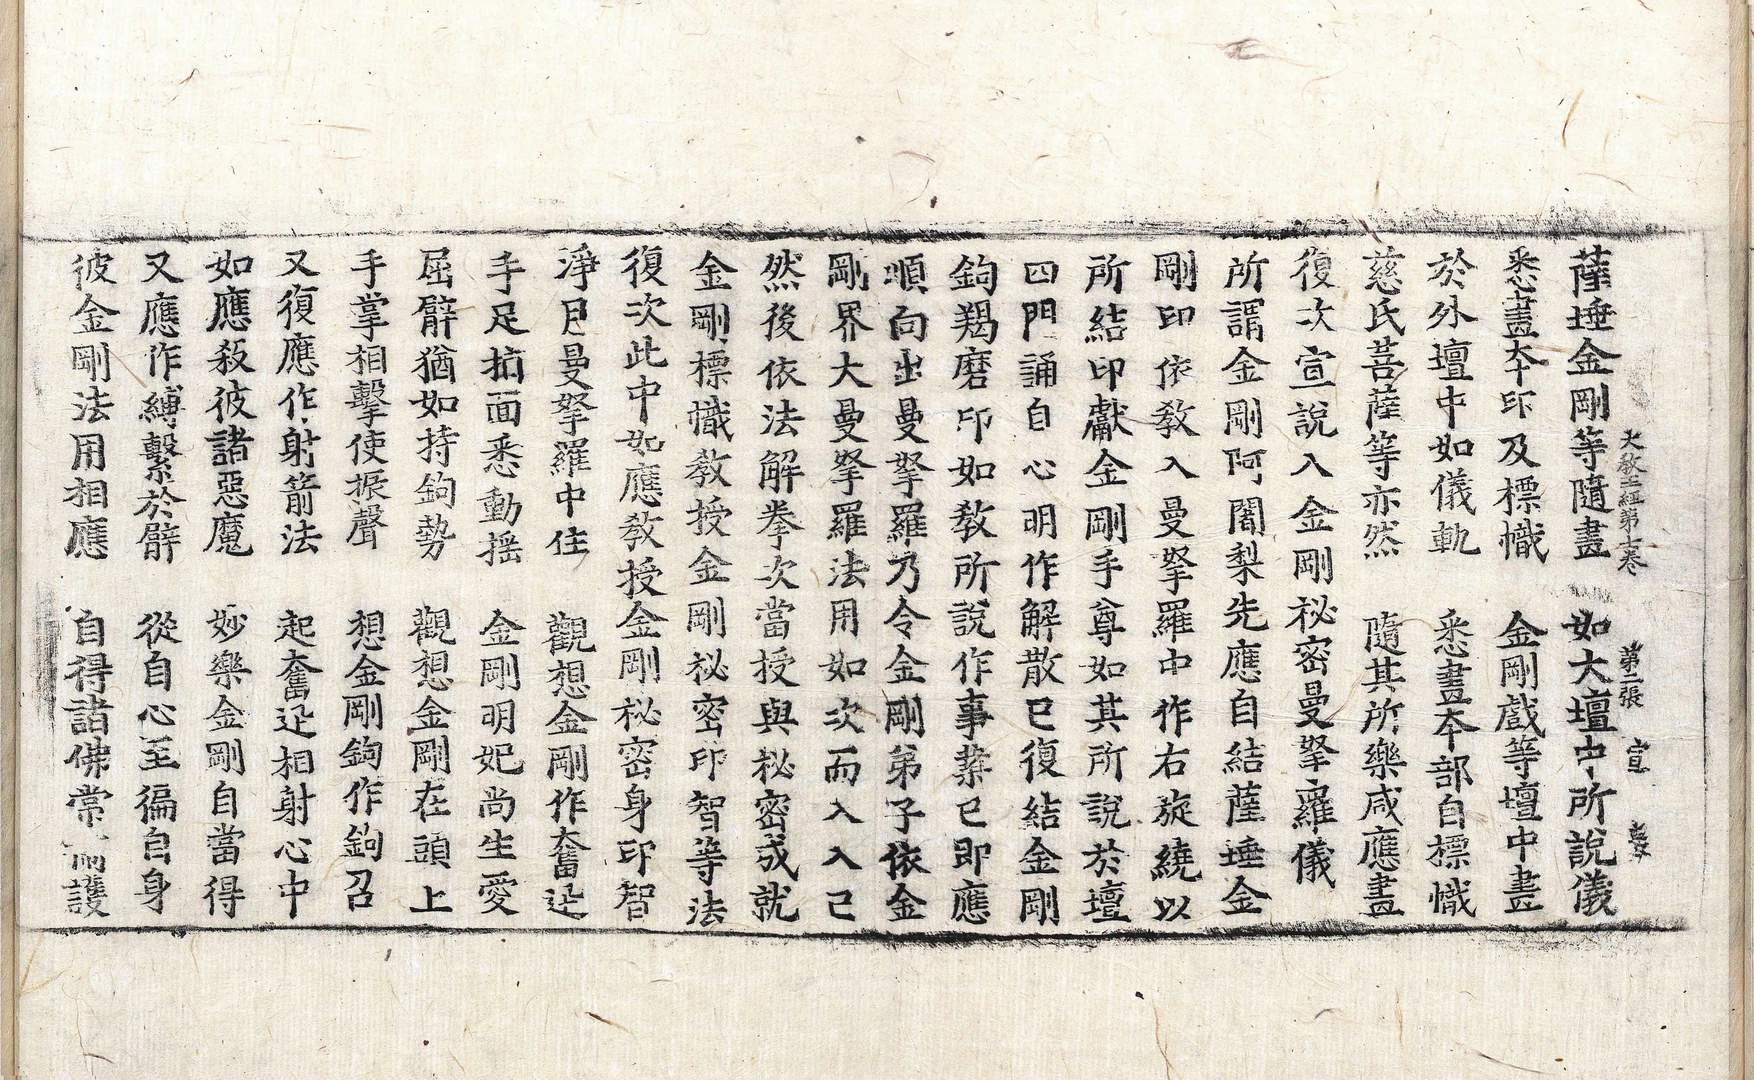 大教王經第十卷 第二張 宣
薩埵金剛等隨畫 如大壇中所說儀
悉畫本印及標幟 金剛戲等壇中畫
於外壇中如儀軌 悉畫本部自標幟
慈氏菩薩等亦然 隨其所樂咸應畫
復次宣說入金剛祕密曼拏羅儀
所謂金剛阿闍梨先應自結薩埵金
剛印依教入曼拏羅中作右旋繞以
所結印獻金剛手尊如其所說於壇
四門誦自心明作解散已復結金剛
鉤羯磨印如教所說作事業已即應
順向出曼拏羅乃令金剛弟子依金
剛界大曼拏羅法用如次而入入已
然後依法解拳次當授與祕密成就
金剛標幟教授金剛祕密印智等法
復次此中如應教授金剛祕密身印智
淨月曼拏羅中住 觀想金剛作奮迅
手足拍面悉動搖 金剛明妃尚生愛
屈臂猶如持鉤勢 觀想金剛在頭上
手掌相擊使振聲 想金剛鉤作鉤召
又復應作射箭法 起奮迅相射心中
如應殺彼諸惡魔 妙樂金剛自當得
又應作縛繫於臂 從自心至徧自身
彼金剛法用相應 自得諸佛常衛護